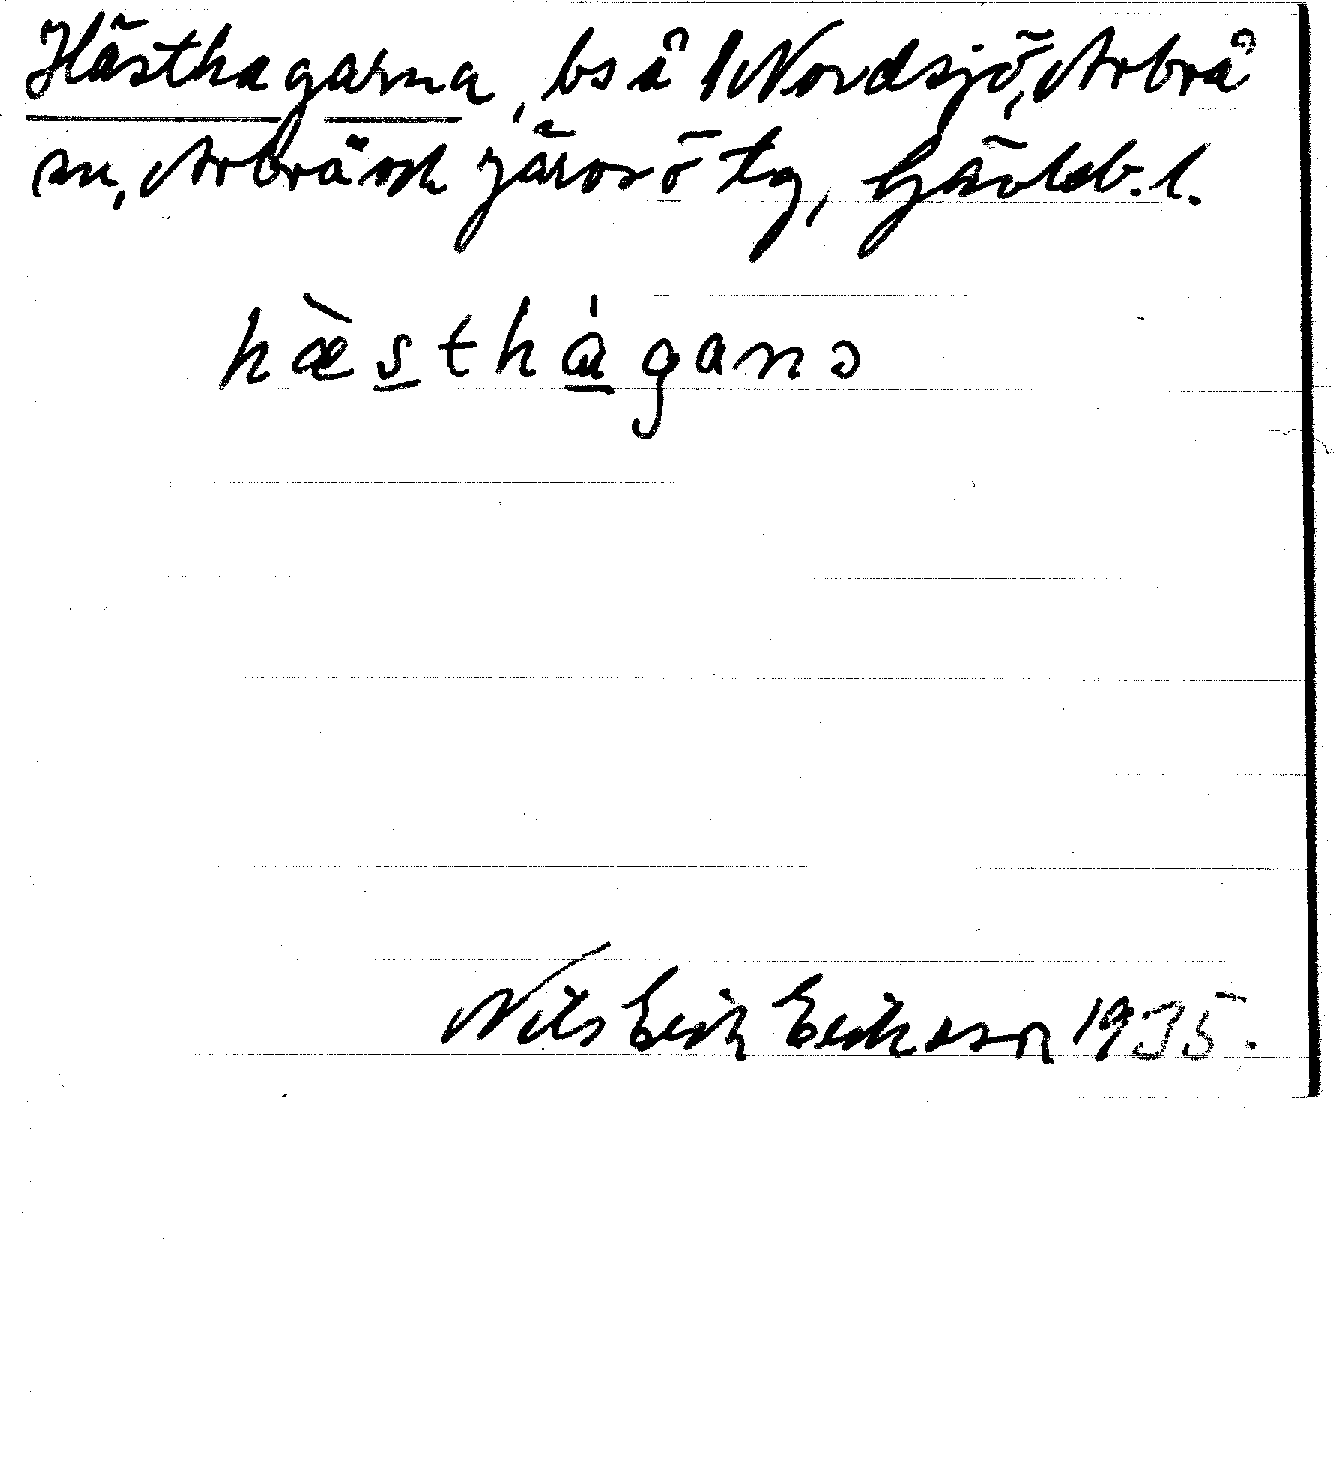 Hästhagarna, bs å 1 Nordsjö, Arbrå
sn, Arbrå och Järvsö tg, Gävleb. l.
hæ̀stháganɔ
Nils Erik Erikson 1935.